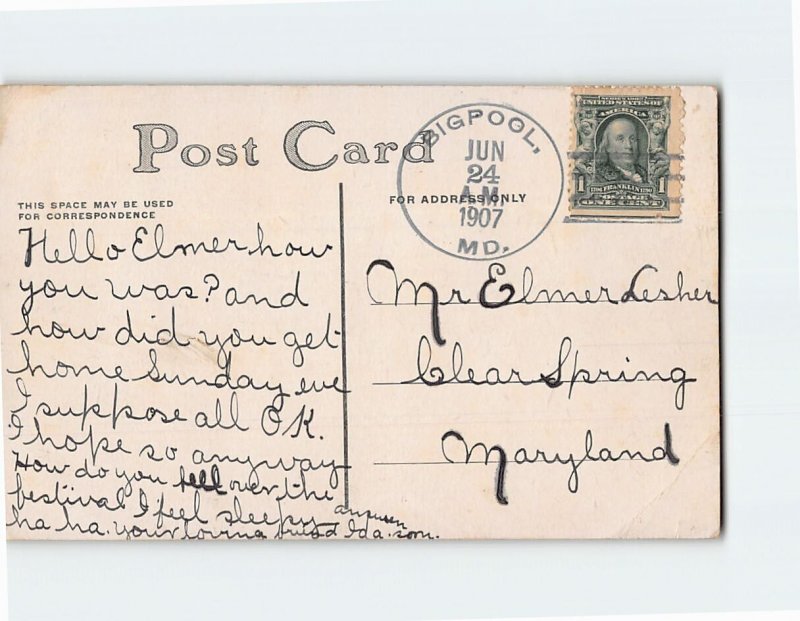 Post Card
THIS SPACE MAY BE USED
FOR CORRESPONDENCE
FOR ADDRESS ONLY
BIGPOOL,
JUN
24
A.M.
1907
MD.
SERIES 1902
UNITED STATES OF
AMERICA
1 FRANKLIN 1
POSTAGE
ONE CENT
Hello Elmer how
you was? and
how did you get
home Sunday eve
I suppose all O.K.
I hope so anyway
How do you feel over the
festival I feel sleepy
ha ha. your loving friend Ida.
answer
soon.
Mr Elmer Lesher
Clear Spring
Maryland